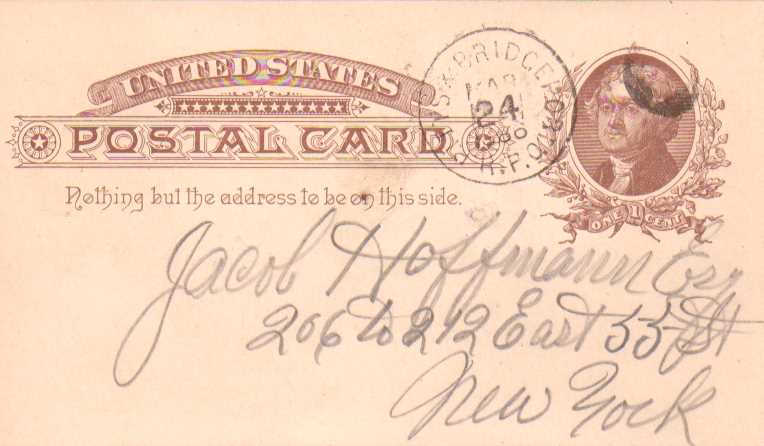 UNITED STATES
POSTAL CARD
Nothing but the address to be on this side.
BRIDGEPORT
MAR
24
R.P.O.
ONE 1 CENT
Jacob Hoffmann Esq
206 to 212 East 55 St
New York